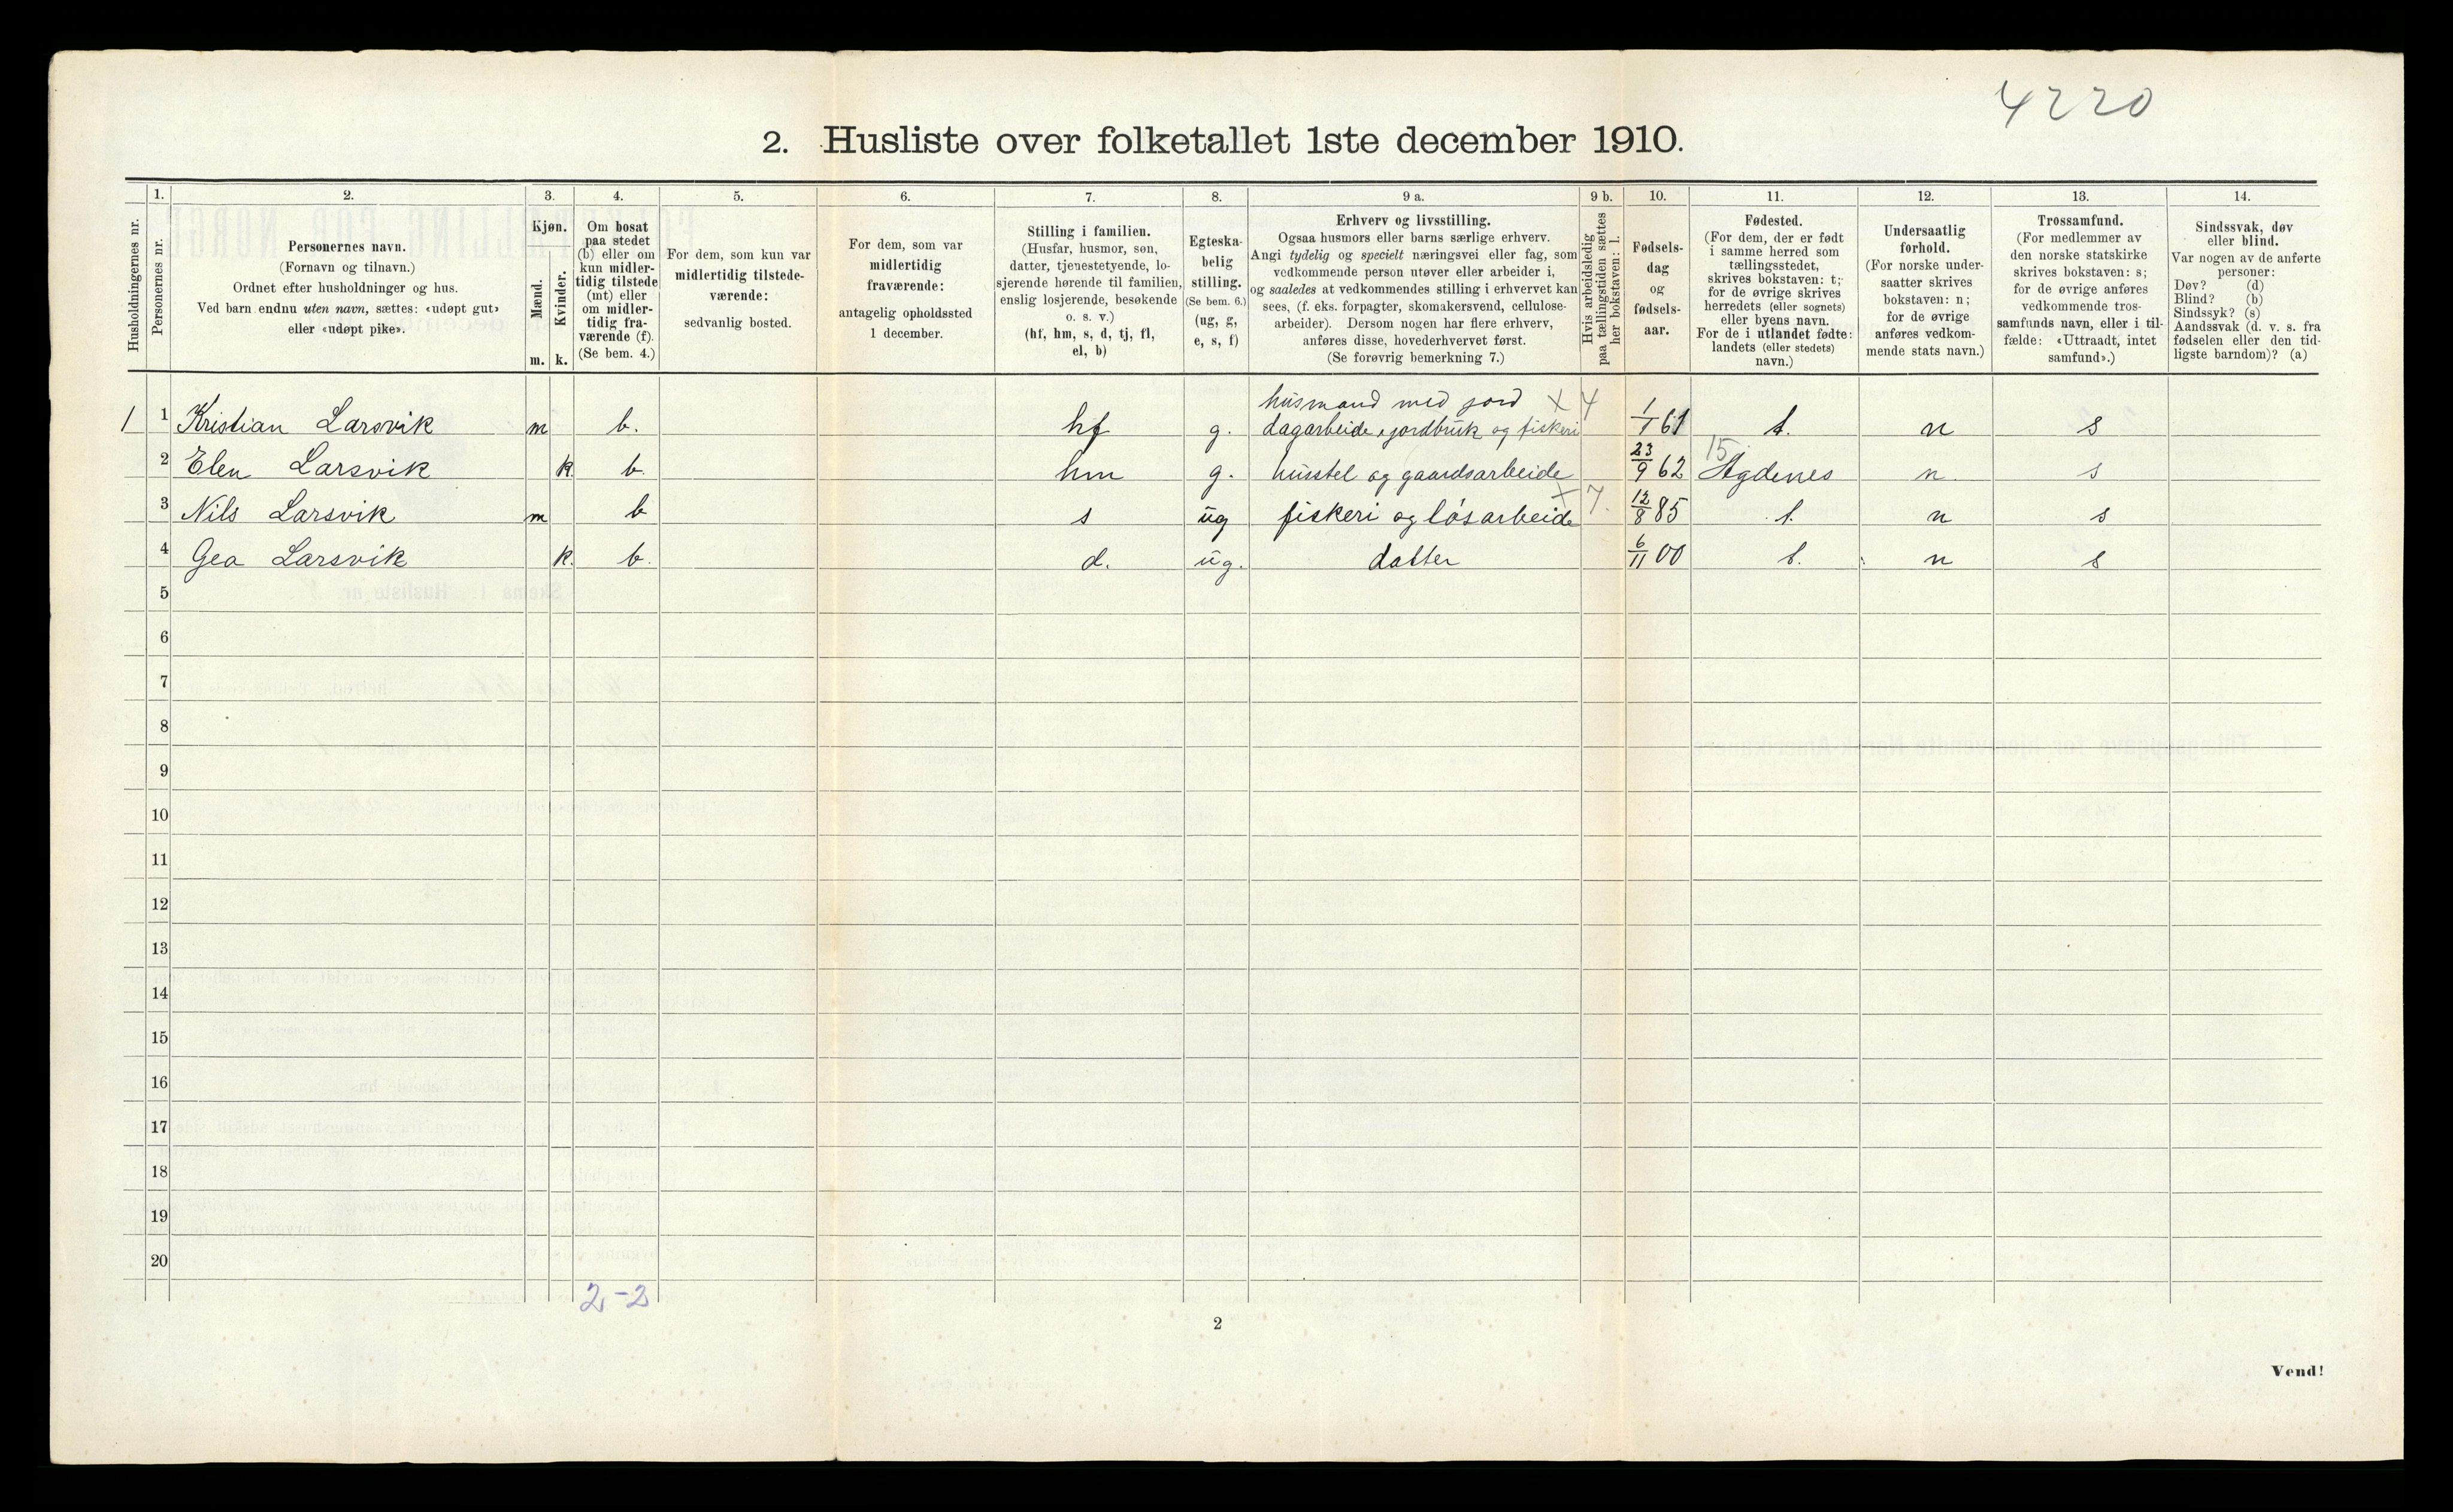 4220
2. Husliste over folketallet 1ste december 1910.
1. 2. 3. 4. 5. 6. 7. 8. 9 a. 9 b. 10. 11. 12. 13. 14.
Husholdningernes nr.
Personernes nr.
Personernes navn.
(Fornavn og tilnavn.)
Ordnet efter husholdninger og hus.
Ved barn endnu uten navn, sættes: «udøpt gut»
eller «udøpt pike».
Kjøn.
Mænd.
Kvinder.
m. k.
Om bosat
paa stedet
(b) eller om
kun midler-
tidig tilstede
(mt) eller
om midler-
tidig fra-
værende (f).
(Se bem. 4.)
For dem, som kun var
midlertidig tilstede-
værende:
sedvanlig bosted.
For dem, som var
midlertidig
fraværende:
antagelig opholdssted
1 december.
Stilling i familien.
(Husfar, husmor, søn,
datter, tjenestetyende, lo-
sjerende hørende til familien,
enslig losjerende, besøkende
o. s. v.)
(hf, hm, s, d, tj, fl,
el, b)
Egteska-
belig
stilling.
(Se bem. 6.)
(ug, g,
e, s, f)
Erhverv og livsstilling.
Ogsaa husmors eller barns særlige erhverv.
Angi tydelig og specielt næringsvei eller fag, som
vedkommende person utøver eller arbeider i,
og saaledes at vedkommendes stilling i erhvervet kan
sees, (f. eks. forpagter, skomakersvend, cellulose-
arbeider). Dersom nogen har flere erhverv,
anføres disse, hovederhvervet først.
(Se forøvrig bemerkning 7.)
Hvis arbeidsledig
paa tællingstiden sættes
her bokstaven: l.
Fødsels-
dag
og
fødsels-
aar.
Fødested.
(For dem, der er født
i samme herred som
tællingsstedet,
skrives bokstaven: t;
for de øvrige skrives
herredets (eller sognets)
eller byens navn.
For de i utlandet fødte:
landets (eller stedets)
navn.)
Undersaatlig
forhold.
(For norske under-
saatter skrives
bokstaven: n;
for de øvrige
anføres vedkom-
mende stats navn.)
Trossamfund.
(For medlemmer av
den norske statskirke
skrives bokstaven: s;
for de øvrige anføres
vedkommende tros-
samfunds navn, eller i til-
fælde: «Uttraadt, intet
samfund».)
Sindssvak, døv
eller blind.
Var nogen av de anførte
personer:
Døv? (d)
Blind? (b)
Sindssyk? (s)
Aandssvak (d. v. s. fra
fødselen eller den tid-
ligste barndom)? (a)
husmand med jord X 4
1 1 Kristian Larsvik m b. hf g. dagarbeide, jordbruk og fiskeri 1/1 61 t. n s
15
2 Elen Larsvik k b. hm g. husstel og gaardsarbeide 23/9 62 Agdenes n. s
3 Nils Larsvik m b s ug fiskeri og løsarbeide X 7. 12/8 85 t. n s
4 Gea Larsvik k. b. d. ug. datter 6/11 00 t. n s
5
6
7
8
9
10
11
12
13
14
15
16
17
18
19
20
2-2
2
Vend!